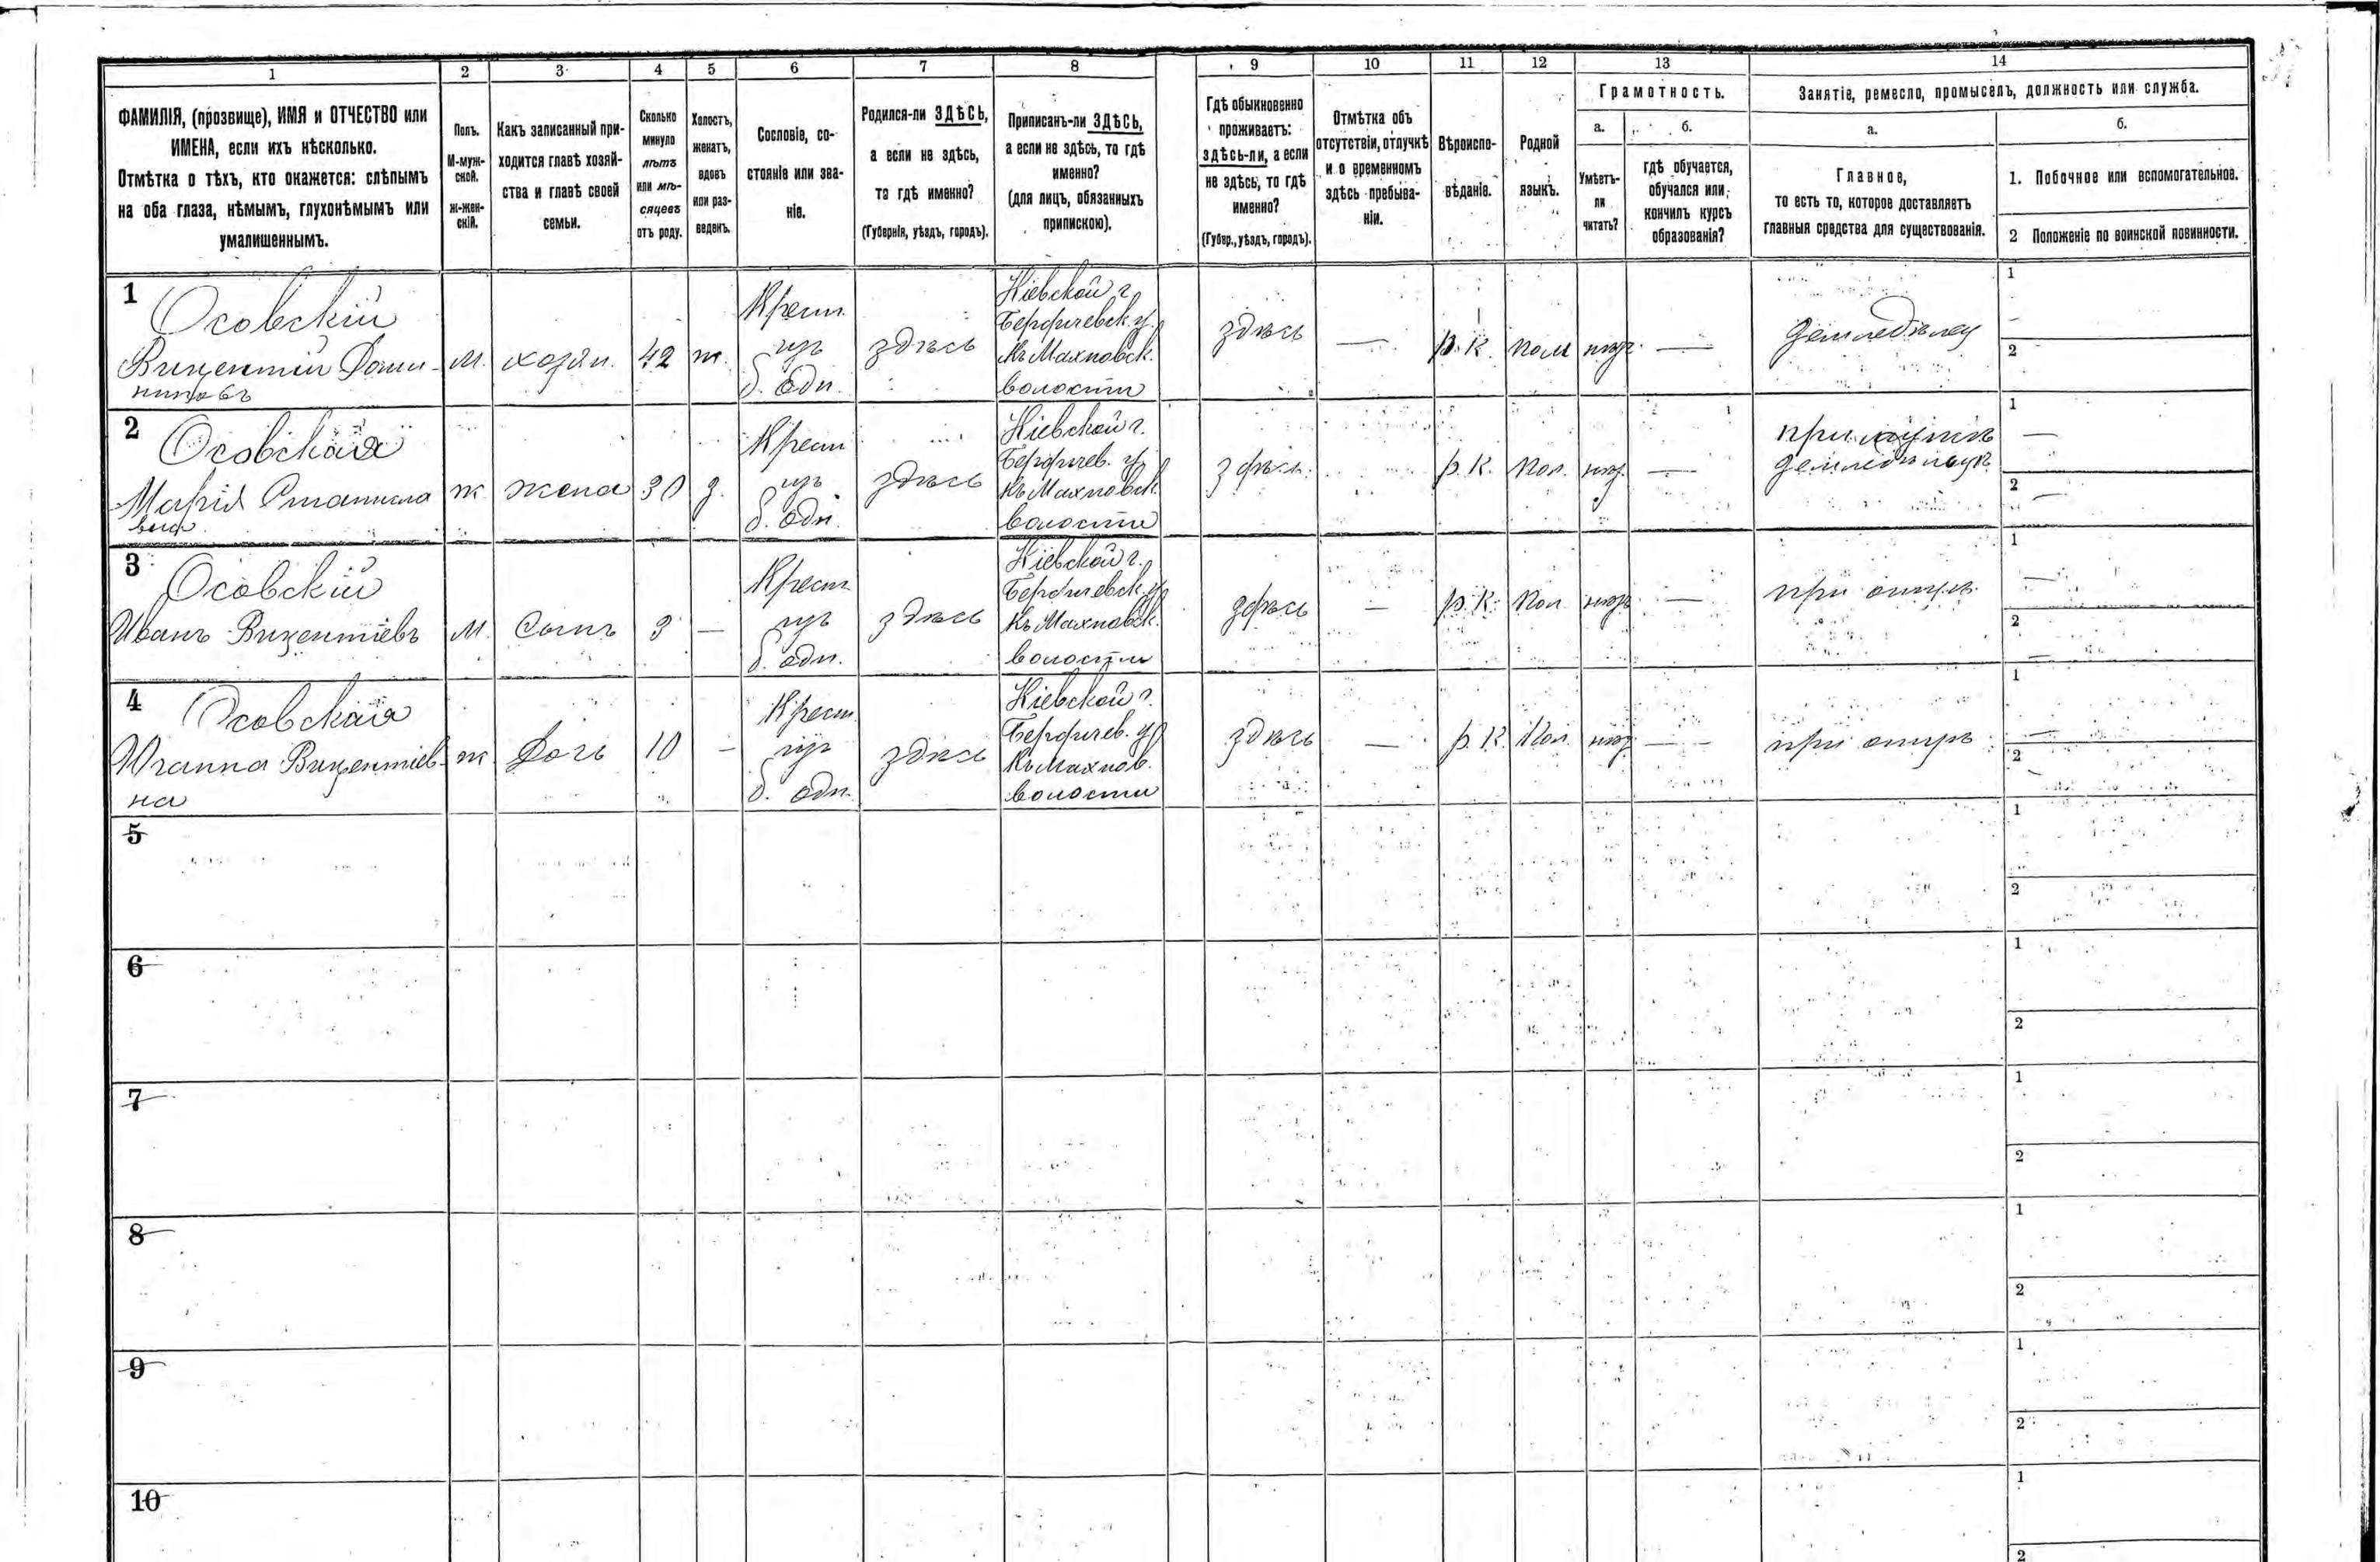 1
2
3
4
5
6
7
8
9
10
11
12
13
14
ФАМИЛІЯ, (прозвище), ИМЯ и ОТЧЕСТВО или
ИМЕНА, если ихъ нѣсколько.
Отмѣтка о тѣхъ, кто окажется: слѣпымъ
на оба глаза, нѣмымъ, глухонѣмымъ или
умалишеннымъ.
Полъ.
М-муж-
ской.
ж-жен-
скій.
Какъ записанный при-
ходится главѣ хозяй-
ства и главѣ своей
семьи.
Сколько
минуло
лѣтъ
или мѣ-
сяцевъ
отъ роду.
Холостъ,
женатъ,
вдовъ
или раз-
веденъ.
Сословіе, со-
стояніе или зва-
ніе.
Родился-ли ЗДѢСЬ,
а если не здѣсь,
то гдѣ именно?
(Губернія, уѣздъ, городъ).
Приписанъ-ли ЗДѢСЬ,
а если не здѣсь, то гдѣ
именно?
(для лицъ, обязанныхъ
припискою).
Гдѣ обыкновенно
проживаетъ:
здѣсь-ли, а если
не здѣсь, то гдѣ
именно?
(Губер., уѣздъ, городъ).
Отмѣтка объ
отсутствіи, отлучкѣ
и о временномъ
здѣсь пребыва-
ніи.
Вѣроиспо-
вѣданіе.
Родной
языкъ.
Грамотность.
а.
б.
Умѣетъ-
ли
читать?
гдѣ обучается,
обучался или
кончилъ курсъ
образованія?
Занятіе, ремесло, промыселъ, должность или служба.
а.
б.
Главное,
то есть то, которое доставляетъ
главныя средства для существованія.
1. Побочное или вспомогательное.
2 Положеніе по воинской повинности.
1
Осовскій
Викентій Доми-
никовъ
м.
хозяи.
42
ж.
Крест
изъ
б. одн.
здѣсь
Кіевской г.
Бердичевск. у.
Къ Махновск.
волости
здѣсь
—
р. к.
пол
—
земледѣлец
1
2
2
Осовская
Марія Станисла
вова
ж
жена
30
з.
Крест
изъ
б. одн.
здѣсь
Кіевской г.
Бердичев. у.
Къ Махновск.
волости
здѣсь
р. к.
пол.
—
при мужѣ
1 —
2 —
3
Осовскій
Иванъ Викентіевъ
м.
Сынъ
3
—
Крест
изъ
б. одн.
здѣсь
Кіевской г.
Бердичевск. у.
Къ Махновск.
волости
здѣсь
—
р. к.
пол
—
при отцѣ
1 —
2 —
4
Осовская
Юганна Викентіев-
на
ж
Дочь
10
—
Крест.
изъ
б. одн.
здѣсь
Кіевской г.
Бердичев. у.
Къ Махнов.
волости
здѣсь
—
р. к.
Пол.
—
при отцѣ
1 —
2
5
1
2
6
1
2
7
1
2
8
1
2
9
1
2
10
1
2